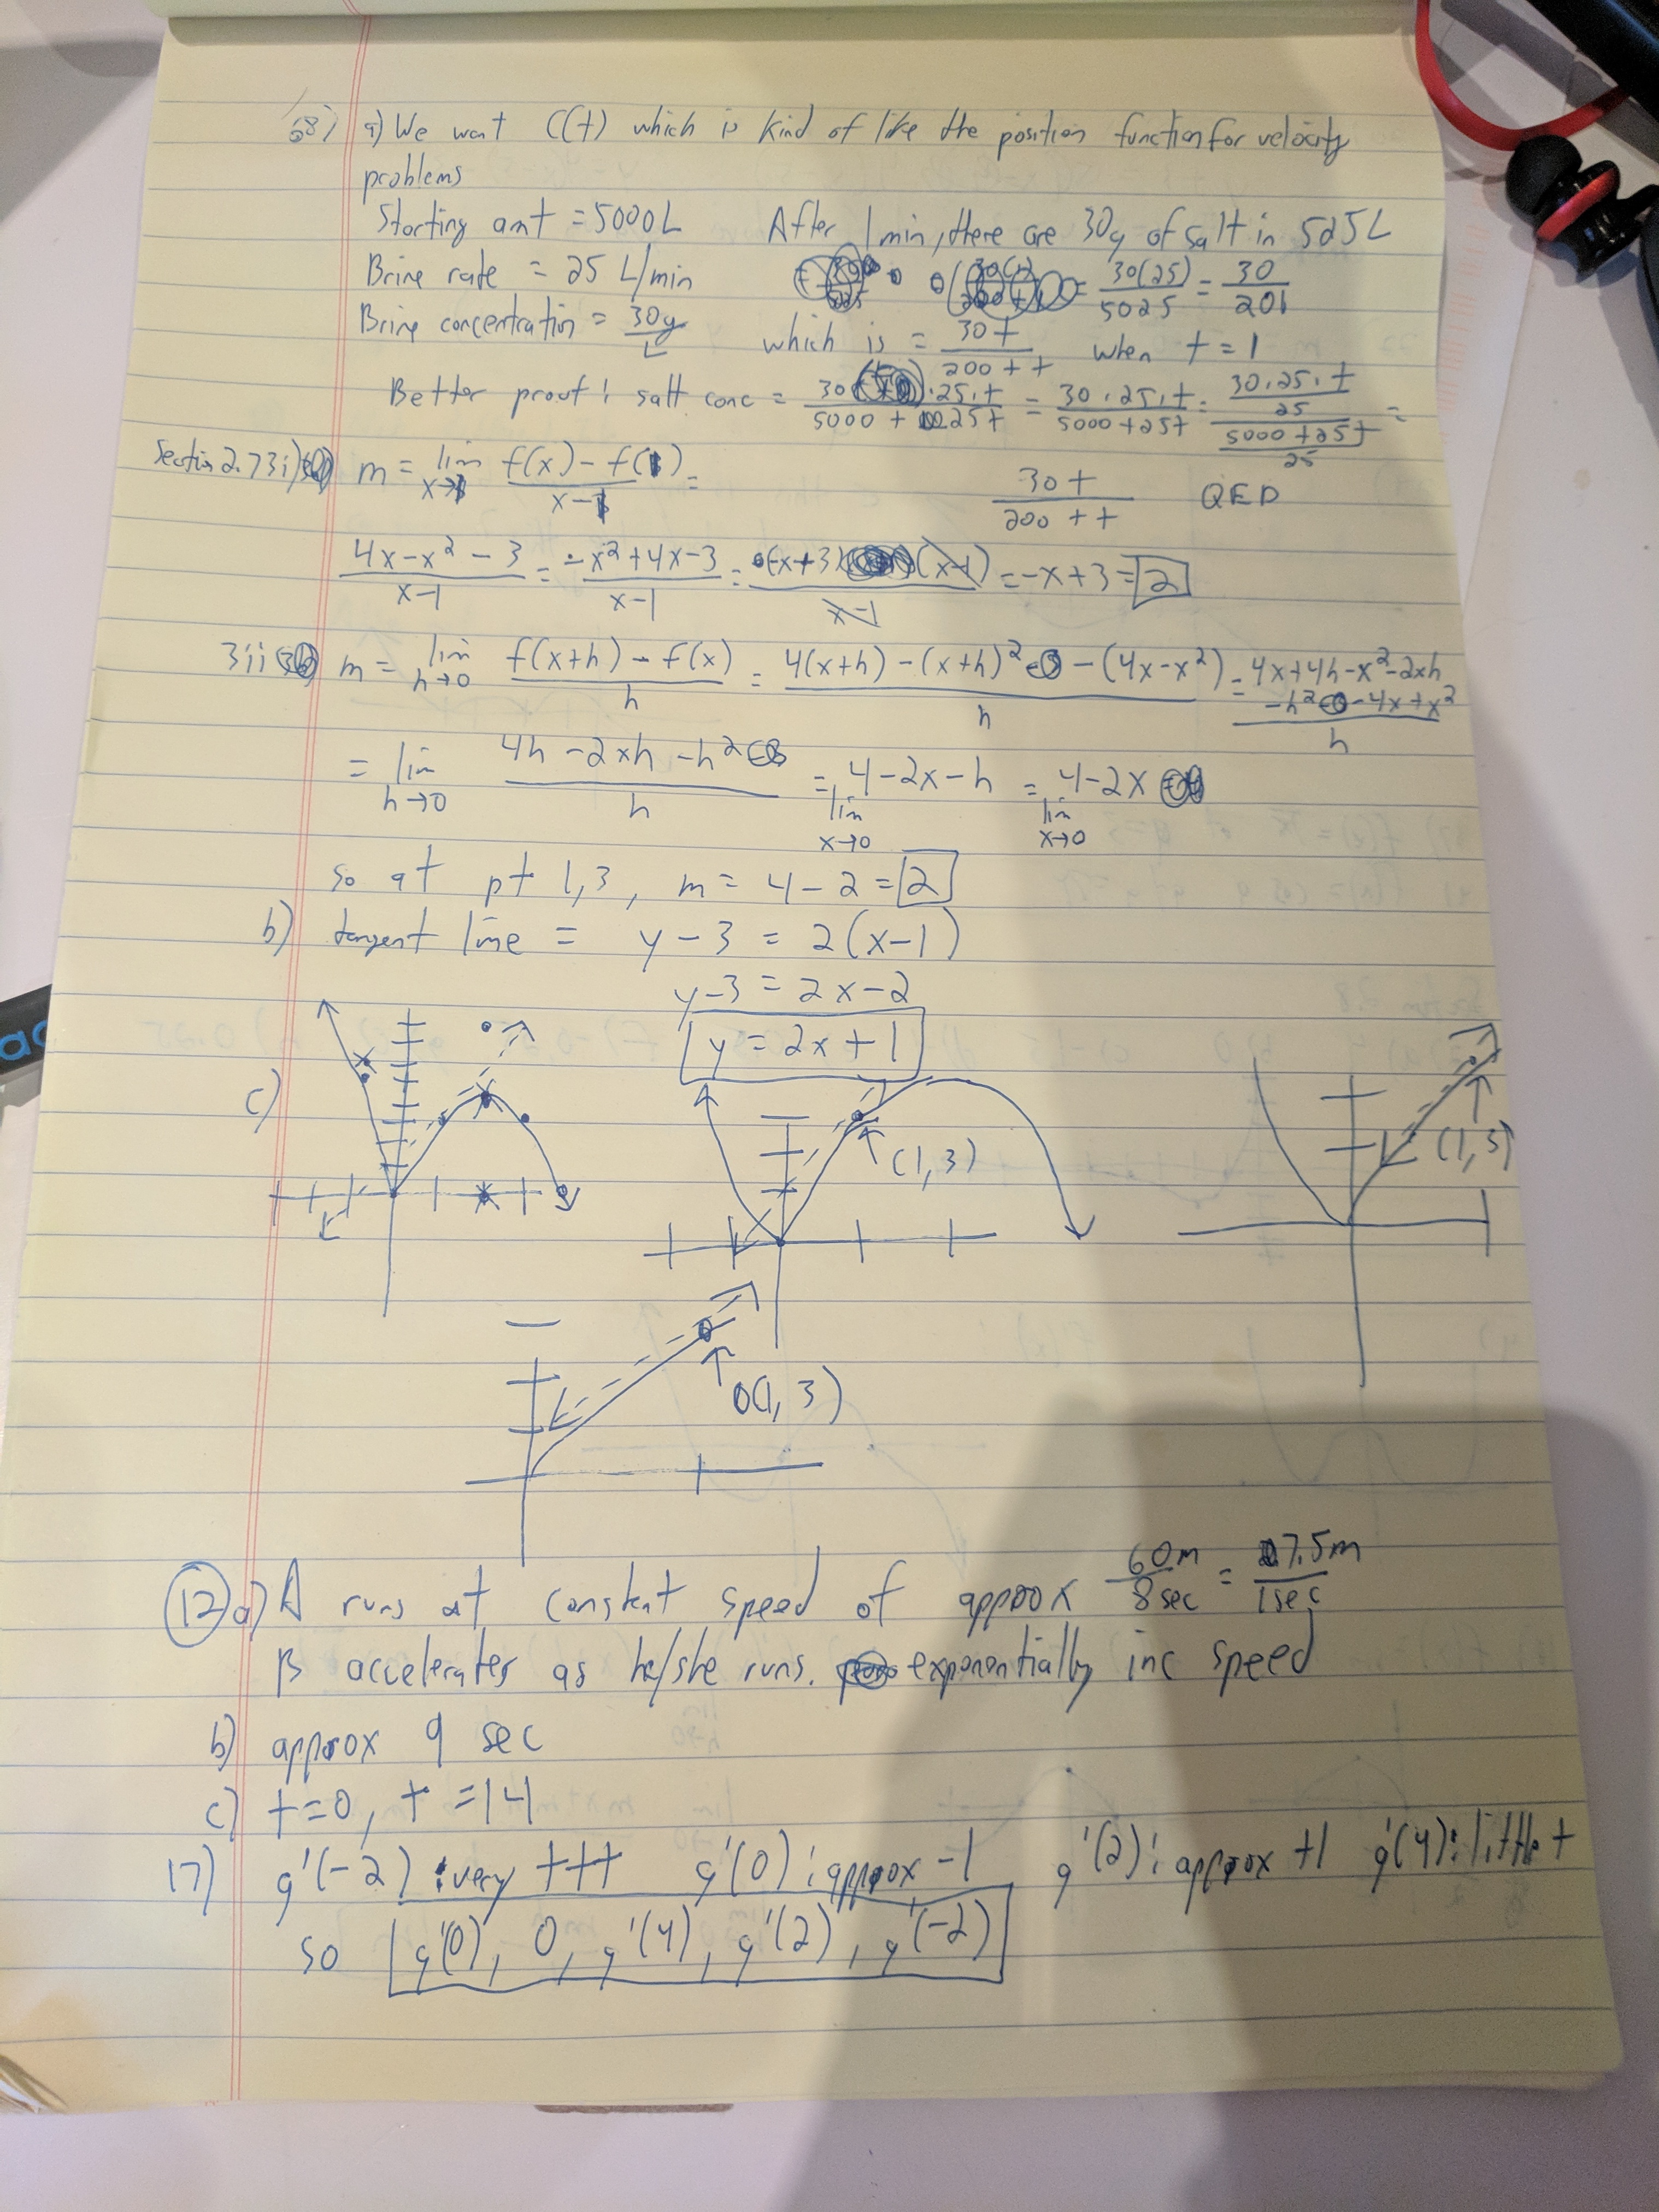 68) a) We want C(t) which is kind of like the position function for velocity
problems
Starting amt = 5000L After 1 min, there are 30g of salt in 525L
Brine rate = 25 L/min = 30(25)/5025 = 30/201
Brine concentration = 30g/L which is = 30t/(200+t) when t=1
Better proof: salt conc = 30·25·t/(5000+25t) = 30·25·t/(5000+25t) = (30·25·t/25)/((5000+25t)/25) =
30t/(200+t) QED
Section 2.7 3i) m = lim x→1 (f(x)-f(1))/(x-1) =
(4x-x²-3)/(x-1) = (-x²+4x-3)/(x-1) = (-x+3)(x-1)/(x-1) = -x+3 = 2
3ii m = lim h→0 (f(x+h)-f(x))/h = (4(x+h)-(x+h)²-(4x-x²))/h = (4x+4h-x²-2xh
-h²-4x+x²)/h
= lim h→0 (4h-2xh-h²)/h = lim x→0 4-2x-h = lim x→0 4-2x
so at pt 1,3, m = 4-2 = 2
b) tangent line = y-3 = 2(x-1)
y-3 = 2x-2
y = 2x+1
c)
(1,3)
(1,3)
(1,3)
12 a) A runs at constant speed of approx 60m/8sec = 7.5m/1sec
B accelerates as he/she runs. exponentially inc speed
b) approx 9 sec
c) t=0, t=14
17) g'(-2): very +++ g'(0): approx -1 g'(2): approx +1 g'(4): little +
so g'(0), 0, g'(4), g'(2), g'(-2)